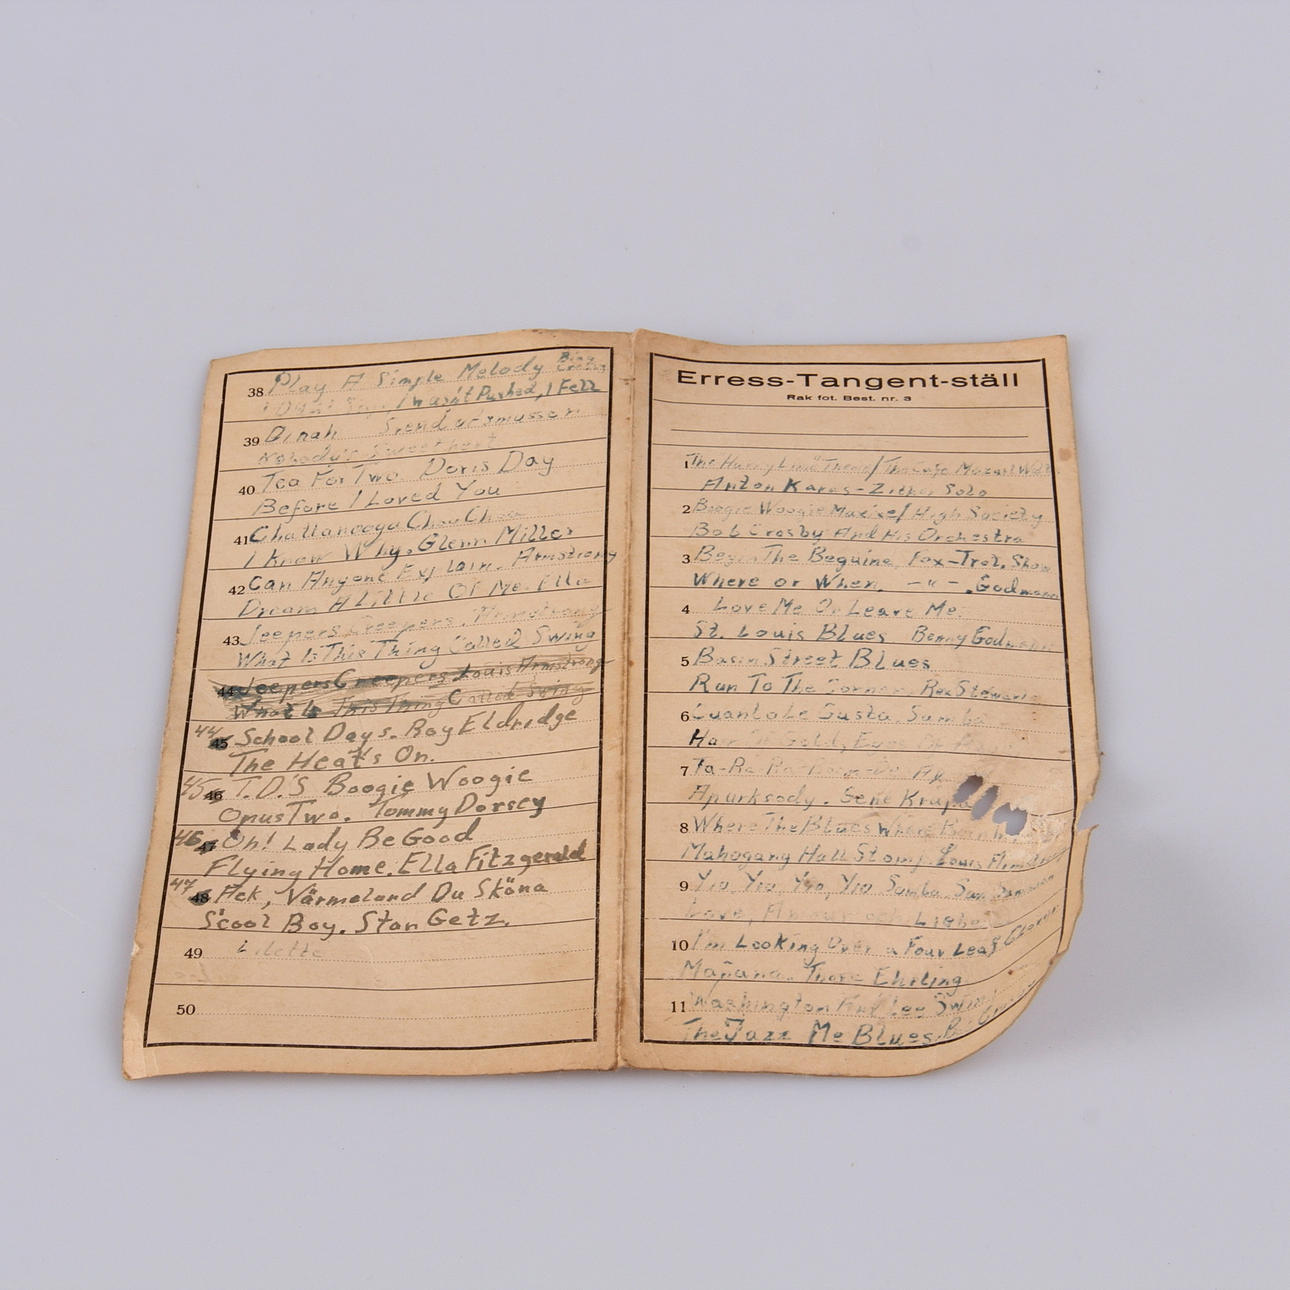 38 Play A Simple Melody Bing Crosby
I Wasn't Pushed, I Fell
39 Dinah Svend Asmussen
Nobody's Sweethert
40 Tea For Two Doris Day
Before I Loved You
41 Chattanooga Choo Choo
I Know Why. Glenn Miller
42 Can Anyone Explain. Armstrong
Dream A Little Of Me. Ella
43 Jeepers Creepers. Armstrong
What Is This Thing Called Swing
44 Jeepers Creepers Louis Armstrong
What Is This Thing Called Swing
44 45 School Days. Roy Eldridge
The Heat's On.
45 46 T.D.S Boogie Woogie
Opus Two. Tommy Dorsey
46 47 Oh! Lady Be Good
Flying Home. Ella Fitzgerald
47 48 Ack, Värmeland Du Sköna
Scool Boy. Stan Getz.
49
50
Erress-Tangent-ställ
Rak fot. Best. nr. 3
1 The Harry Lime Theme/The Cafe Mozart
Anton Karas-Zither Solo
2 Boogie Woogie Maxixe/High Society
Bob Crosby And His Orchestra
3 Begin The Beguine, Fox-Trot, Shaw
Where or When, -"- . Godman
4 Love Me Or Leave Me
St. Louis Blues Benny Godman
5 Basin Street Blues
Run To The Corner. Rex Stewart
6 Cuanto Le Gusta. Samba
Hair Of Gold, Eyes Of
7 Ta-Ra-Ra-Boom-De-Ay
Apurksody. Gene Krupa
8 Where The Blues Where Born In
Mahogany Hall Stomp. Louis Armstrong
9 Yio, Yio, Yio, Yio Samba.
Love, Amour och Liebe
10 I'm Looking Over a Four Leaf Clover
Mañana. Thore Ehrling
11 Washington And Lee Swing
The Jazz Me Blues.